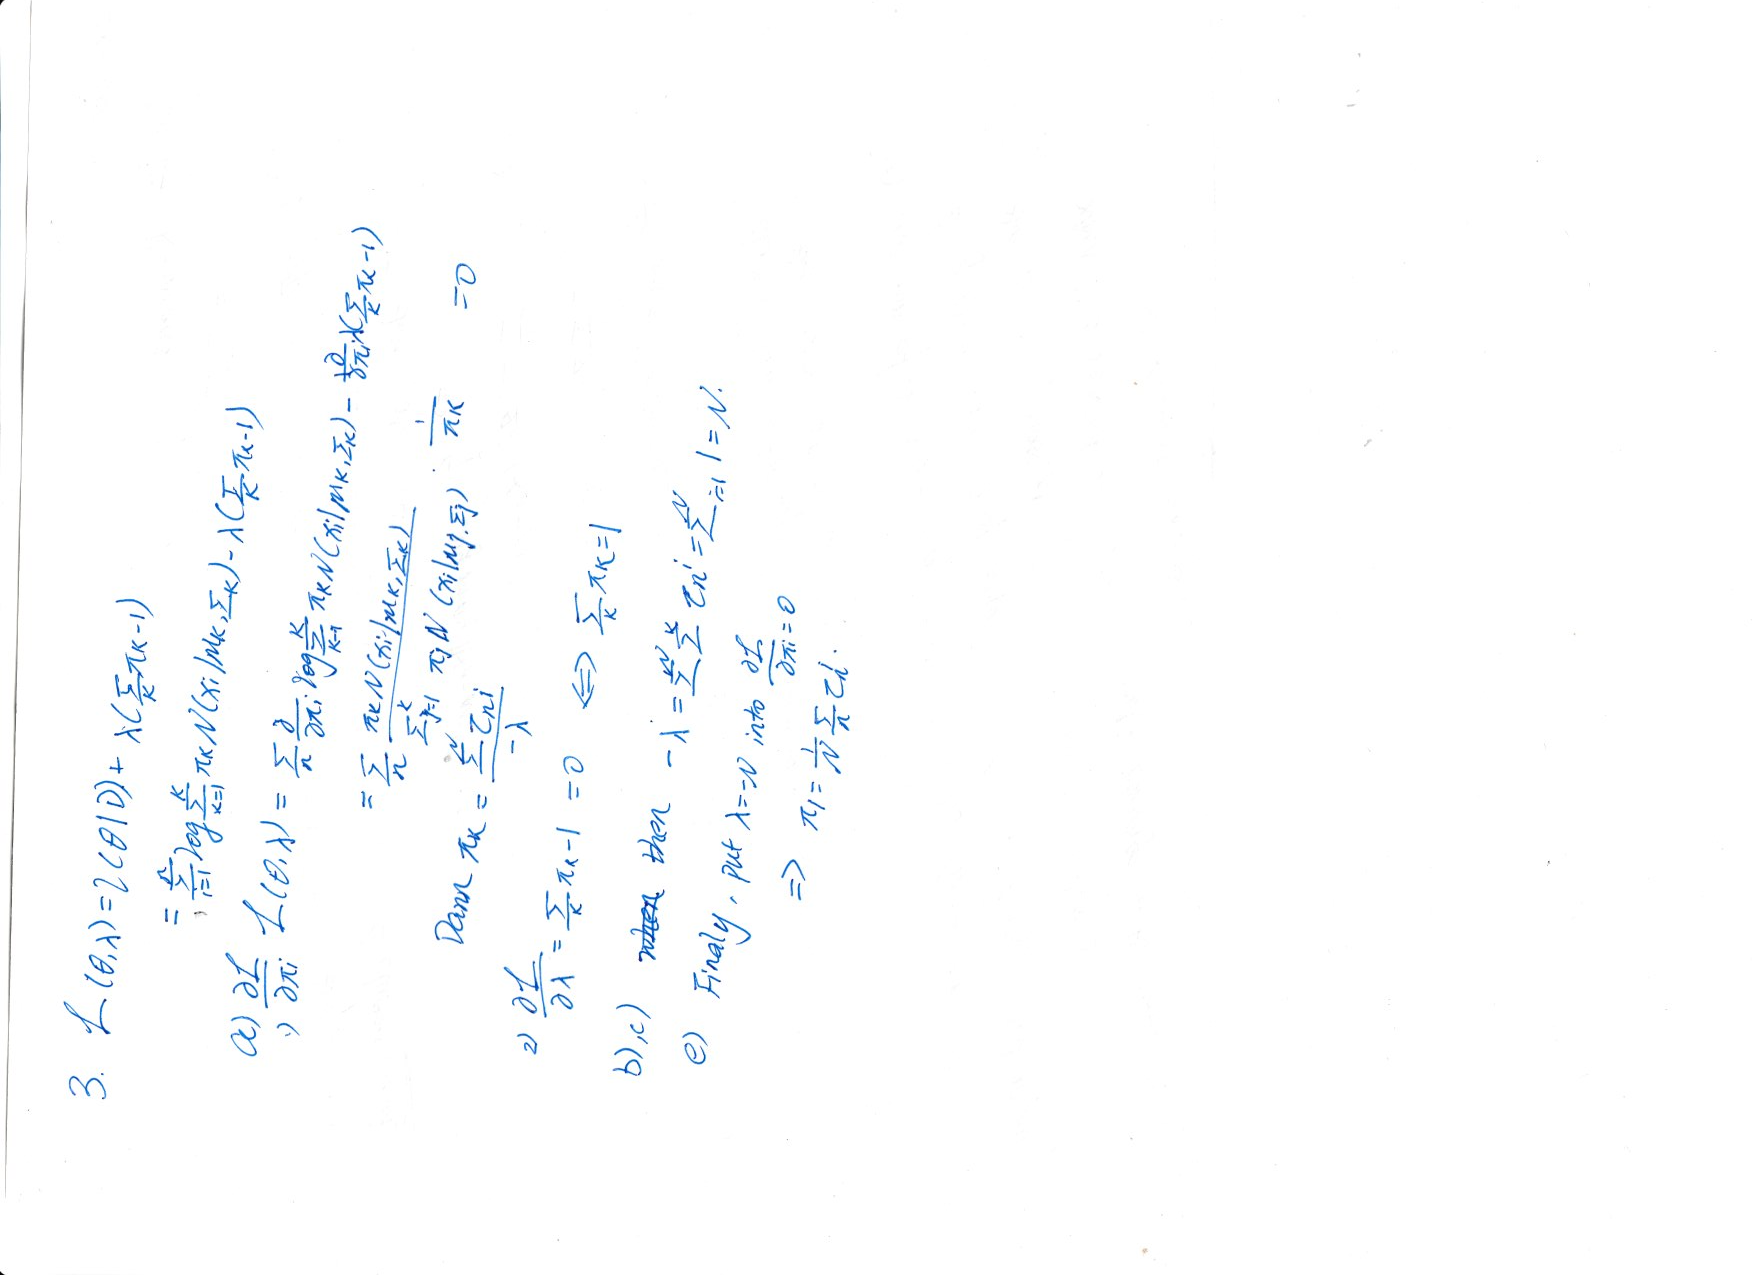 3. L(θ,λ) = L(θ|D) + λ(Σ_k π_k - 1)
= Σ_{i=1}^{n} log Σ_{k=1}^{K} π_k N(x_i|μ_k, Σ_k) - λ(Σ_k π_k - 1)
a) 1) ∂L/∂π_i L(θ,λ) = Σ_n ∂/∂π_i log Σ_{k=1}^{K} π_k N(x_i|μ_k, Σ_k) - ∂/∂π_i λ(Σ_k π_k - 1)
= Σ_n π_k N(x_i|μ_k, Σ_k) / Σ_{j=1}^{K} π_j N(x_i|μ_j, Σ_j) · 1/π_k = 0
Dann π_k = Σ^N τ_ni / -λ
2) ∂L/∂λ = Σ_k π_k - 1 = 0 ⇔ Σ_k π_k = 1
b), c) then - λ = Σ^N Σ^K τ_ni = Σ_{i=1}^N 1 = N.
e) Finaly, put λ = -N into ∂L/∂π_i = 0
⇒ π_1 = 1/N Σ_n τ_i.